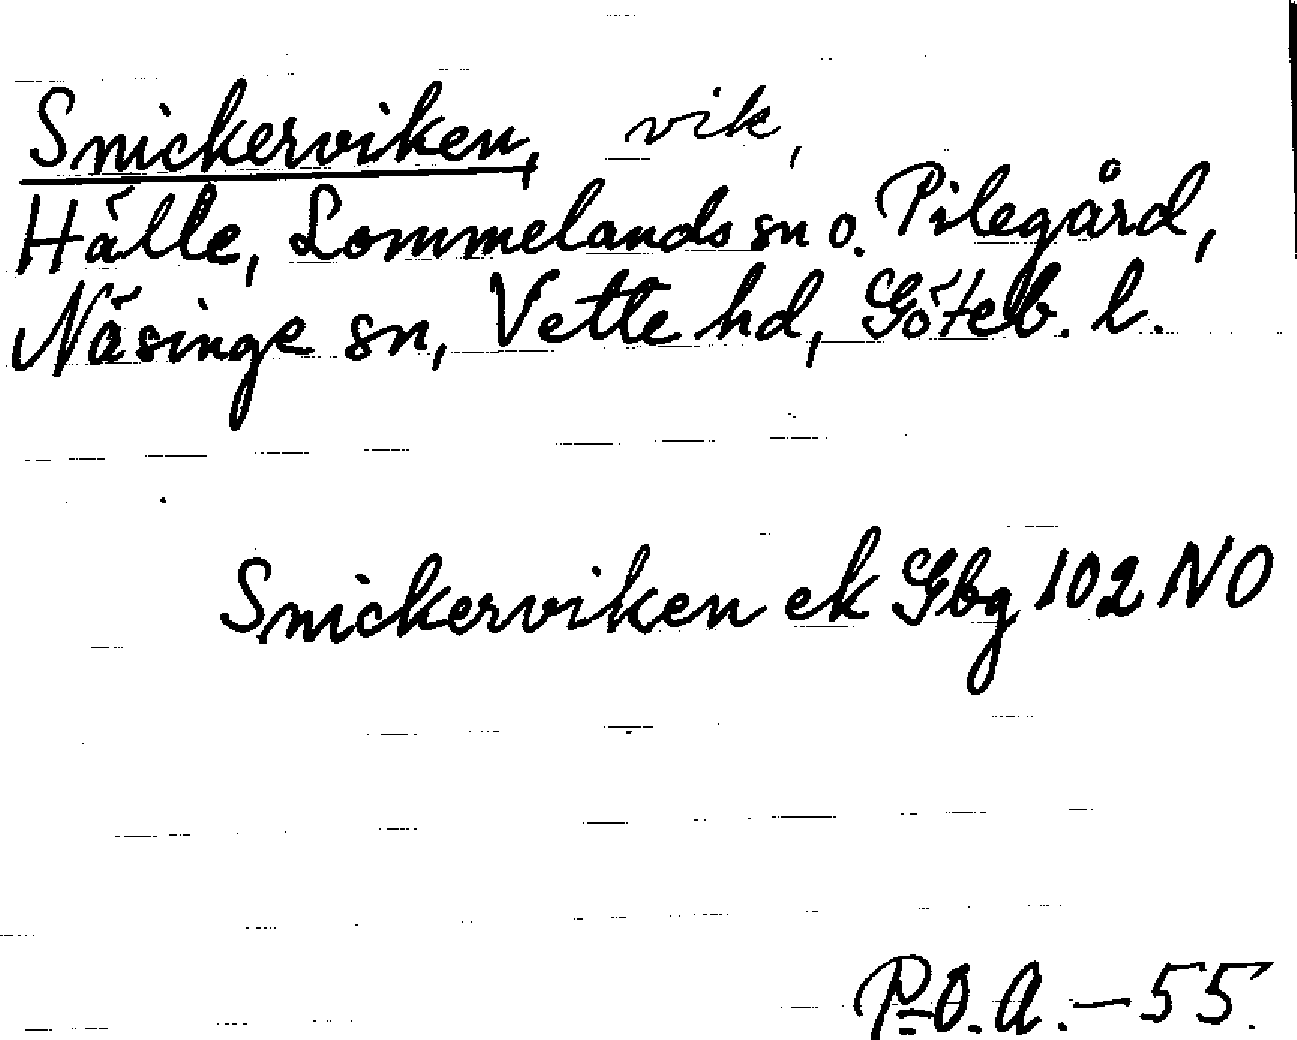 Snickerviken, vik,
Hälle, Lommelands sn o. Pilegård,
Näsinge sn, Vette hd, Göteb. l.
Snickerviken ek Gbg 102 NO
P-O.A. - 55.